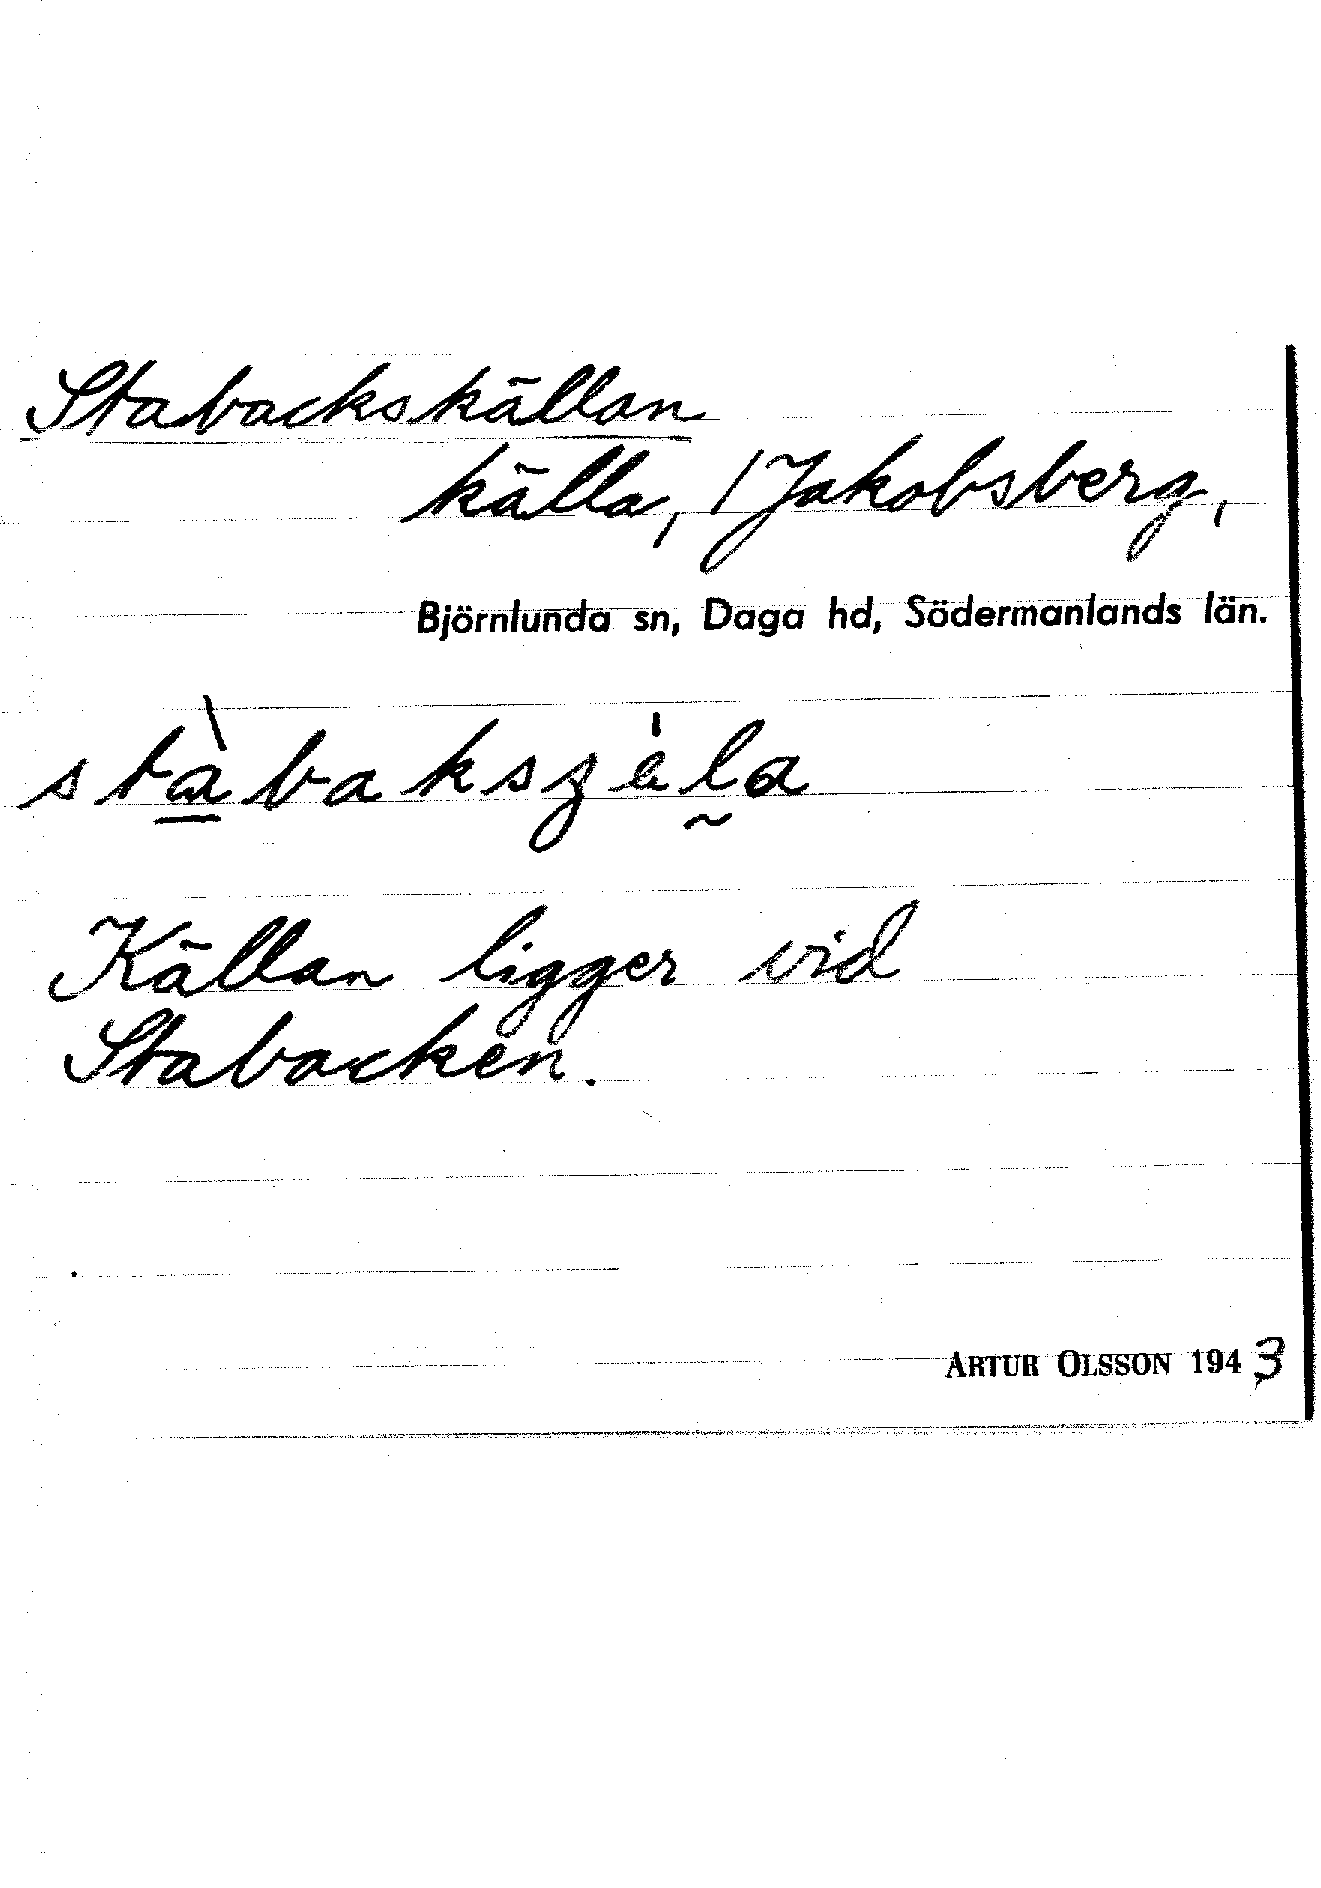 Stabackskällan
källa, /Jakobsberg,
Björnlunda sn, Daga hd, Södermanlands län.
Källan ligger vid
Stabacken.
ARTUR OLSSON 1943